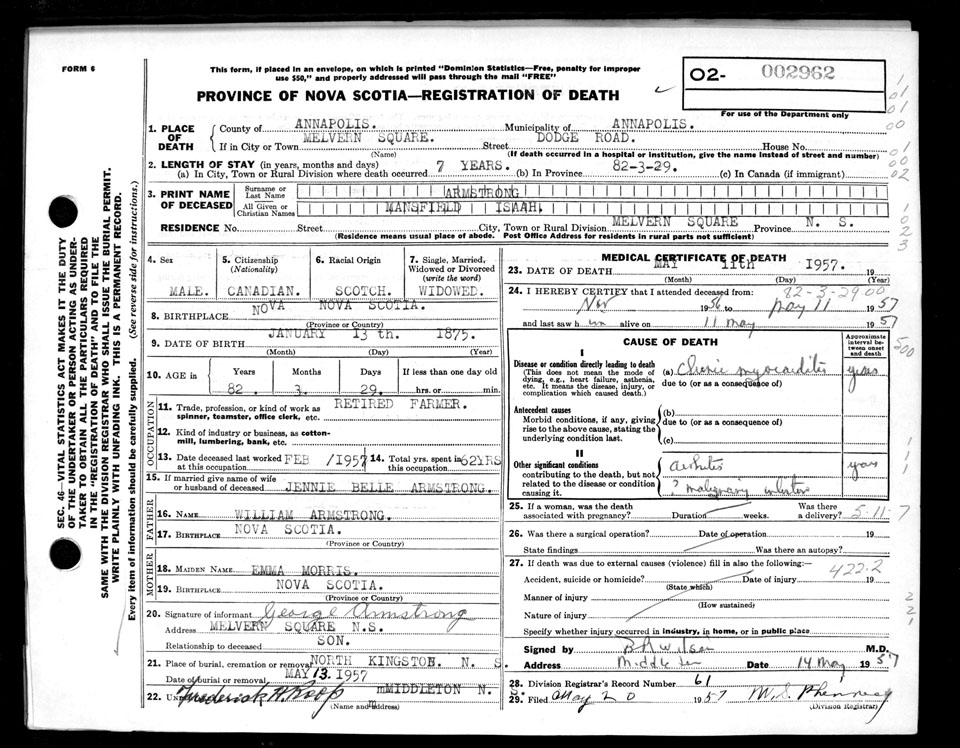 FORM 6
This form, if placed in an envelope, on which is printed "Dominion Statistics—Free, penalty for improper
use $50," and properly addressed will pass through the mail "FREE"
PROVINCE OF NOVA SCOTIA—REGISTRATION OF DEATH
O2- 002962
For use of the Department only
SEC. 46—VITAL STATISTICS ACT MAKES IT THE DUTY
OF THE UNDERTAKER OR PERSON ACTING AS UNDER-
TAKER TO OBTAIN ALL THE PARTICULARS REQUIRED
IN THE "REGISTRATION OF DEATH" AND TO FILE THE
SAME WITH THE DIVISION REGISTRAR WHO SHALL ISSUE THE BURIAL PERMIT.
WRITE PLAINLY WITH UNFADING INK. THIS IS A PERMANENT RECORD.
Every item of information should be carefully supplied. (See reverse side for instructions.)
1. PLACE OF DEATH
County of ANNAPOLIS. Municipality of ANNAPOLIS.
If in City or Town MELVERN SQUARE. Street DODGE ROAD. House No.
(Name) (If death occurred in a hospital or institution, give the name instead of street and number)
2. LENGTH OF STAY (in years, months and days)
(a) In City, Town or Rural Division where death occurred 7 YEARS. (b) In Province 82-3-29. (c) In Canada (if immigrant)
3. PRINT NAME OF DECEASED
Surname or Last Name ARMSTRONG
All Given or Christian Names MANSFIELD ISAAH.
RESIDENCE No. Street City, Town or Rural Division MELVERN SQUARE Province N. S.
(Residence means usual place of abode. Post Office Address for residents in rural parts not sufficient)
4. Sex
MALE.
5. Citizenship
(Nationality)
CANADIAN.
6. Racial Origin
SCOTCH.
7. Single, Married,
Widowed or Divorced
(write the word)
WIDOWED.
8. BIRTHPLACE NOVA NOVA SCOTIA.
(Province or Country)
9. DATE OF BIRTH JANUARY 13 th. 1875.
(Month) (Day) (Year)
10. AGE in Years Months Days If less than one day old
82. 3. 29. hrs. or min.
OCCUPATION
11. Trade, profession, or kind of work as RETIRED FARMER.
spinner, teamster, office clerk, etc.
12. Kind of industry or business, as cotton-
mill, lumbering, bank, etc.
13. Date deceased last worked at this occupation FEB /1957
14. Total yrs. spent in this occupation 62YRS
15. If married give name of wife
or husband of deceased JENNIE BELLE ARMSTRONG.
FATHER
16. NAME WILLIAM ARMSTRONG.
17. BIRTHPLACE NOVA SCOTIA.
(Province or Country)
MOTHER
18. MAIDEN NAME EMMA MORRIS.
19. BIRTHPLACE NOVA SCOTIA.
(Province or Country)
20. Signature of informant George Armstrong
Address MELVERN SQUARE N.S.
Relationship to deceased SON.
21. Place of burial, cremation or removal NORTH KINGSTON. N. S.
Date of burial or removal MAY 13.1957
22. Frederick H. Roop MIDDLETON N. S.
(Name and address)
MEDICAL CERTIFICATE OF DEATH
23. DATE OF DEATH MAY 11th 1957. 19
(Month) (Day) (Year)
24. I HEREBY CERTIFY that I attended deceased from: 82-3-29.00
Nov 1956 to May 11 1957
and last saw him alive on 11 May 1957
CAUSE OF DEATH
Approximate
interval be-
tween onset
and death
I
Disease or condition directly leading to death
(This does not mean the mode of
dying, e.g., heart failure, asthenia,
etc. It means the disease, injury, or
complication which caused death.)
(a) Chronic myocarditis years
due to (or as a consequence of)
Antecedent causes
Morbid conditions, if any, giving
rise to the above cause, stating the
underlying condition last.
(b)
due to (or as a consequence of)
(c)
II
Other significant conditions
contributing to the death, but not
related to the disease or condition
causing it.
arthritis years
? malignancy
25. If a woman, was the death
associated with pregnancy? Duration weeks. Was there
a delivery? 5-11-7
26. Was there a surgical operation? Date of operation 19
State findings Was there an autopsy?
27. If death was due to external causes (violence) fill in also the following:— 422.2
Accident, suicide or homicide? Date of injury 19
(State which)
Manner of injury
(How sustained)
Nature of injury
Specify whether injury occurred in industry, in home, or in public place
Signed by M.D.
Address Middleton Date 14 May 1957
28. Division Registrar's Record Number 61
29. Filed May 20 1957
(Division Registrar)